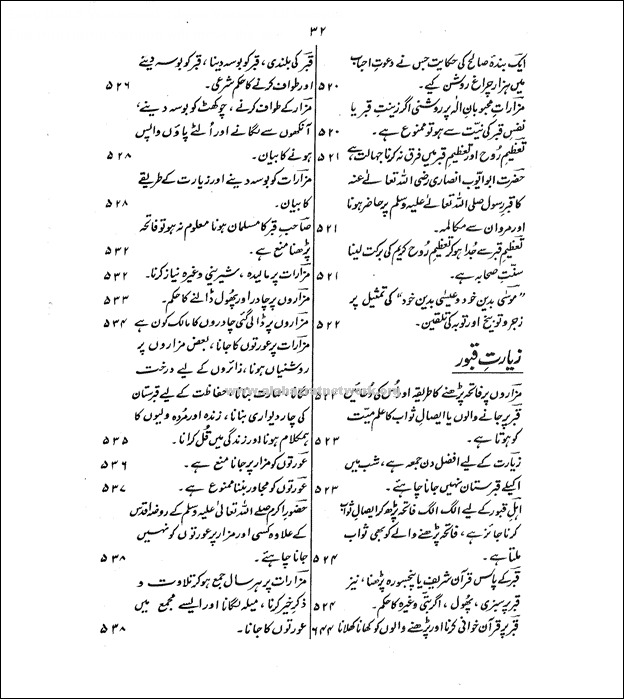 ۳۲
ایک بندۂ صالح کی حکایت جس نے دعوتِ احباب
میں ہزار چراغ روشن کیے۔ ۵۲۰
مزاراتِ محبوبانِ الٰہ پر روشنی اگر زینتِ قبر یا
نفسِ قبر کی نیّت سے ہو تو ممنوع ہے۔ ۵۲۰
تعظیمِ روح اور تعظیمِ قبر میں فرق نہ کرنا جہالت ہے ۵۲۱
حضرت ابوایّوب انصاری رضی اللہ تعالٰے عنہ
کا قبرِ رسول صلی اللہ تعالٰے علیہ وسلم پر حاضر ہونا
اور مروان سے مکالمہ۔ ۵۲۱
تعظیمِ قبر سے جُدا ہو کر تعظیمِ رُوحِ کریم کی برکت لینا
سنّتِ صحابہ ہے۔ ۵۲۱
”موسٰی بدین خود و عیسٰی بدین خود“ کی تمثیل پر
زجر و توبیخ اور توبہ کی تلقین۔ ۵۲۲
زیارتِ قبور
مزاروں پر فاتحہ پڑھنے کا طریقہ اور اس کی دُعائیں ۵۲۲
قبر پر جانے والوں یا ایصالِ ثواب کا علم میّت
کو ہوتا ہے۔ ۵۲۳
زیارت کے لیے افضل دن جمعہ ہے، شب میں
اکیلے قبرستان نہیں جانا چاہئے۔ ۵۲۳
اہلِ قبور کے لیے الگ الگ فاتحہ پڑھ کر ایصالِ ثواب
کرنا جائز ہے، فاتحہ پڑھنے والے کو بھی ثواب
ملتا ہے۔ ۵۲۴
قبر کے پاس قرآن شریف یا پنجسورہ پڑھنا، نیز
قبر پر سبزی، پھول، اگربتّی وغیرہ کا حکم۔ ۵۲۴
قبر پر قرآن خوانی کرنا اور پڑھنے والوں کو کھانا کھلانا ۶۴۴
قبر کی بلندی، قبر کو بوسہ دینا، قبر کو بوسہ دینے
اور طواف کرنے کا حکمِ شرعی۔ ۵۲۶
مزار کے طواف کرنے، چوکھٹ کو بوسہ دینے،
آنکھوں سے لگانے اور اُلٹے پاؤں واپس
ہونے کا بیان۔ ۵۲۸
مزارات کو بوسہ دینے اور زیارت کے طریقے
کا بیان۔ ۵۲۸
صاحبِ قبر کا مسلمان ہونا معلوم نہ ہو تو فاتحہ
پڑھنا منع ہے۔ ۵۳۲
مزارات پر مالیدہ، شیرینی وغیرہ نیاز کرنا۔ ۵۳۲
مزاروں پر چادر اور پھُول ڈالنے کا حکم۔ ۵۳۳
مزاروں پر ڈالی گئی چادروں کا مالک کون ہے ۵۳۴
مزارات پر عورتوں کا جانا، بعض مزاروں پر
روشنیاں ہونا، زائروں کے لیے درخت
لگانا، عمارت بنانا، حفاظت کے لیے قبرستان
کی چار دیواری بنانا، زندہ اور مُردہ ولیوں کا
ہمکلام ہونا اور زندگی میں قُل کرانا۔ ۵۳۵
عورتوں کو مزار پر جانا منع ہے۔ ۵۳۶
عورتوں کو مجاور بننا ممنوع ہے۔ ۵۳۷
حضورِ اکرم صلے اللہ تعالٰی علیہ وسلم کے روضہ اقدس
کے علاوہ کسی اور مزار پر عورتوں کو نہیں
جانا چاہئے۔ ۵۳۸
مزارات پر ہر سال جمع ہو کر تلاوت و
ذکرِ خیر کرنا، میلہ لگانا اور ایسے مجمع میں
عورتوں کا جانا۔ ۵۳۸
www.alahazratnetwork.org